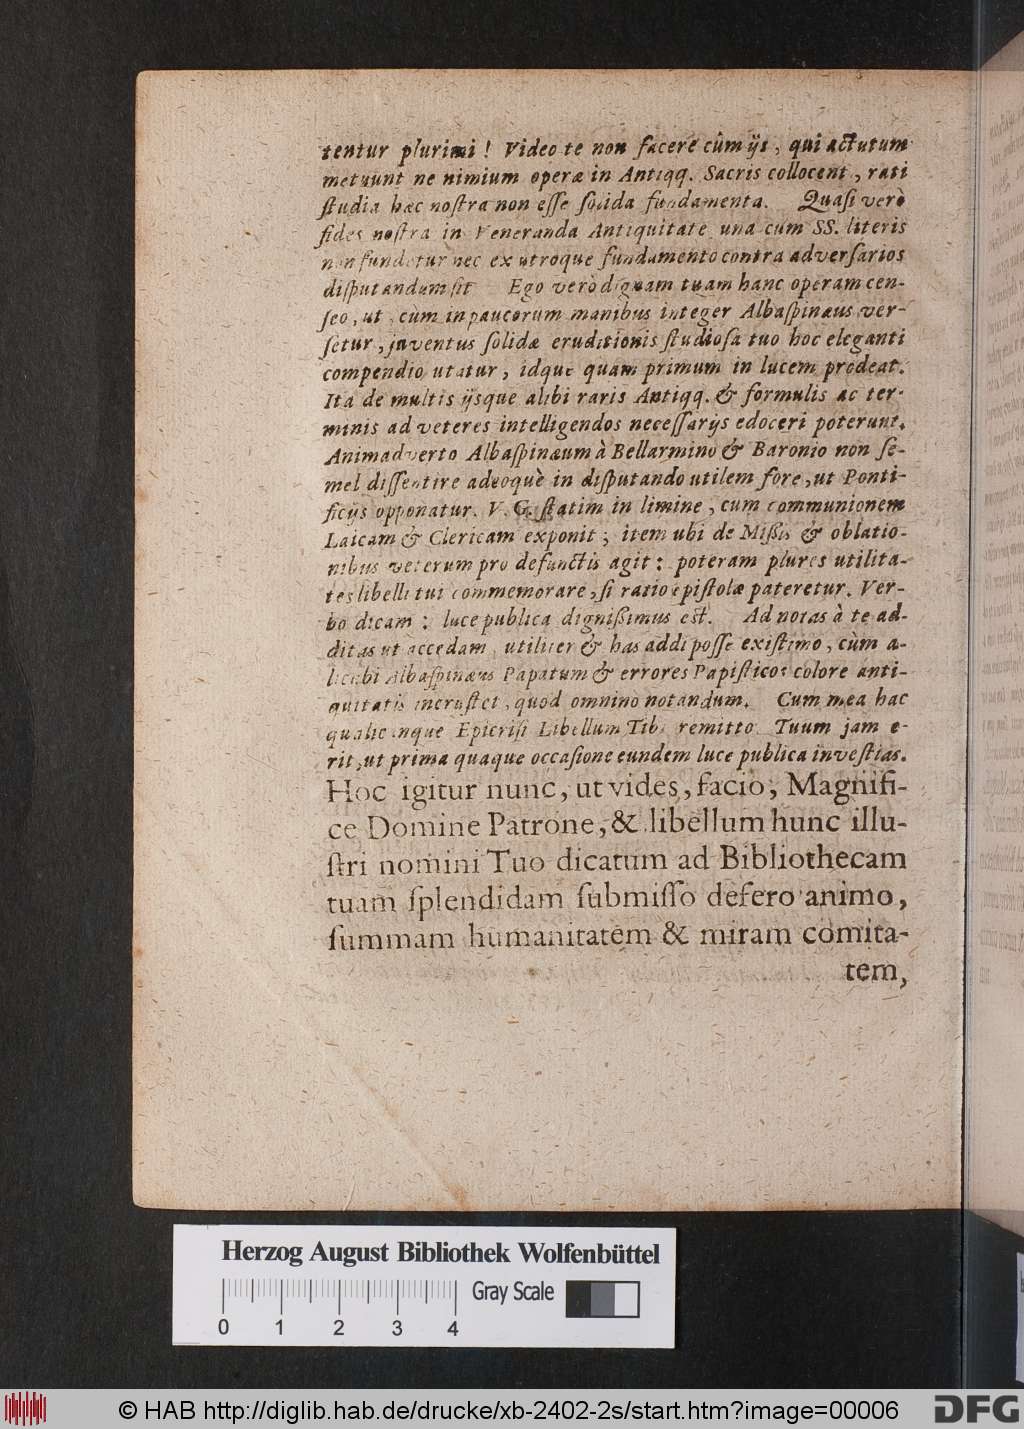 tentur plurimi! Video te non facere cùm ijs, qui actutum
metuunt ne nimium operæ in Antiqq. Sacris collocent, rati
ſtudia hæc noſtra non eſſe ſolida fundamenta. Quaſi verò
fides noſtra in Veneranda Antiquitate una cum SS. literis
non fundetur nec ex utroque fundamento contra adverſarios
diſputandum ſit Ego verò dignam tuam hanc operam cen-
ſeo, ut, cùm in paucorum manibus integer Albaſpinæus ver-
ſetur, juventus ſolidæ eruditionis ſtudioſa tuo hoc eleganti
compendio utatur, idque quam primum in lucem prodeat.
Ita de multis ijsque alibi raris Antiqq. & formulis ac ter-
minis ad veteres intelligendos neceſſarijs edoceri poterunt.
Animadverto Albaſpinæum à Bellarmino & Baronio non ſe-
mel diſſentire adeoquè in diſputando utilem fore, ut Ponti-
ficijs opponatur. V. G. ſtatim in limine, cum communionem
Laicam & Clericam exponit; item ubi de Mißis & oblatio-
nibus veterum pro defunctis agit: poteram plures utilita-
tes libelli tui commemorare, ſi ratio epiſtolæ pateretur. Ver-
bo dicam: luce publica dignißimus eſt. Ad notas à te ad-
ditas ut accedam, utiliter & has addi poſſe exiſtimo, cùm a-
licubi Albaſpinæus Papatum & errores Papiſticos colore anti-
quitatis incruſtet, quod omnino notandum. Cum mea hac
qualicunque Epicriſi Libellum Tibi remitto. Tuum jam e-
rit, ut prima quaque occaſione eundem luce publica inveſtias.
Hoc igitur nunc, ut vides, facio, Magnifi-
ce Domine Patrone, & libellum hunc illu-
ſtri nomini Tuo dicatum ad Bibliothecam
tuam ſplendidam ſubmiſſo defero animo,
ſummam humanitatem & miram comita-
tem,
Herzog August Bibliothek Wolfenbüttel
Gray Scale
0 1 2 3 4
© HAB http://diglib.hab.de/drucke/xb-2402-2s/start.htm?image=00006
DFG